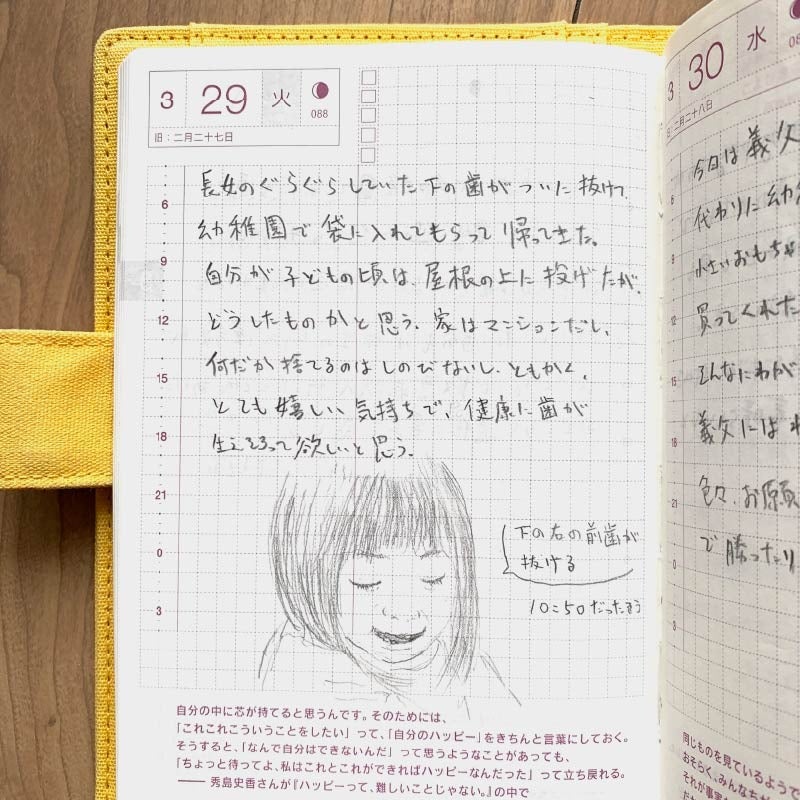 3 29 火 088
旧:二月二十七日
長女のぐらぐらしていた下の歯がついに抜けて、
幼稚園で袋に入れてもらって帰ってきた。
自分が子どもの頃は、屋根の上に投げたが、
どうしたものかと思う。家はマンションだし、
何だか捨てるのはしのびないし、ともかく、
とても嬉しい気持ちで、健康に歯が
生えそろって欲しいと思う。
6
9
12
15
18
21
0
3
下の右の前歯が
抜ける
10:50だったそう
自分の中に芯が持てると思うんです。そのためには、
「これこれこういうことをしたい」って、「自分のハッピー」をきちんと言葉にしておく。
そうすると、「なんで自分はできないんだ」って思うようなことがあっても、
「ちょっと待ってよ、私はこれとこれができればハッピーなんだった」って立ち戻れる。
—— 秀島史香さんが『ハッピーって、難しいことじゃない。』の中で
3 30 水
旧:二月二十八日
今日は義父
代わりに幼
小さいおもちゃ
買ってくれた
そんなにわが
義父には
色々、お願
で勝ったり
同じものを見ているようで
おそらく、みんなちが
それが事実